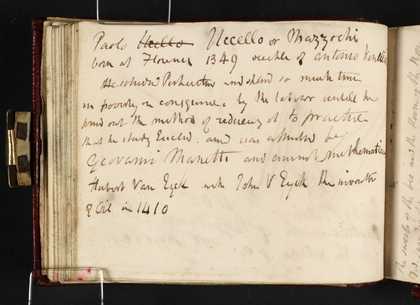 Paolo Uccello Uccello or Mazzochi
born at Florence 1349 of Antonio
He studied Perspective and spent so much time
in poverty in consequence by the labour until he
found out the method of reducing it to practice
that he study Euclid, and was assisted by
Geovanni Manetti and eminent mathematician
Hubert Van Eyck with John V Eyck the inventor
of Oil in 1410